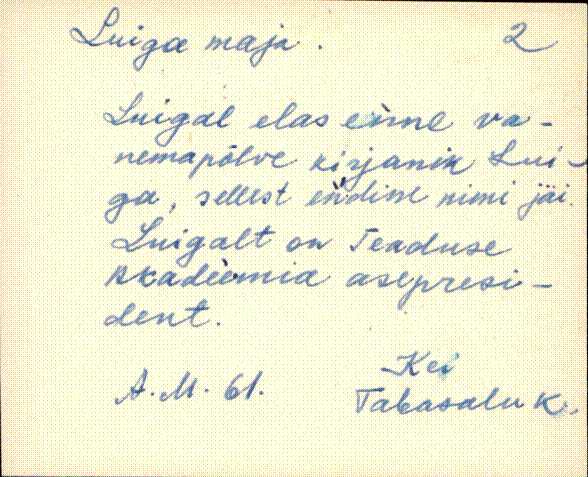 Luiga maja. 2
Luigal elas enne va-
nemapõlve kirjanik Lui-
ga, sellest endine nimi jäi.
Luigalt on Teaduse
Akadeemia asepresi-
dent.
A.M. 61. Kei
Tabasalu k.